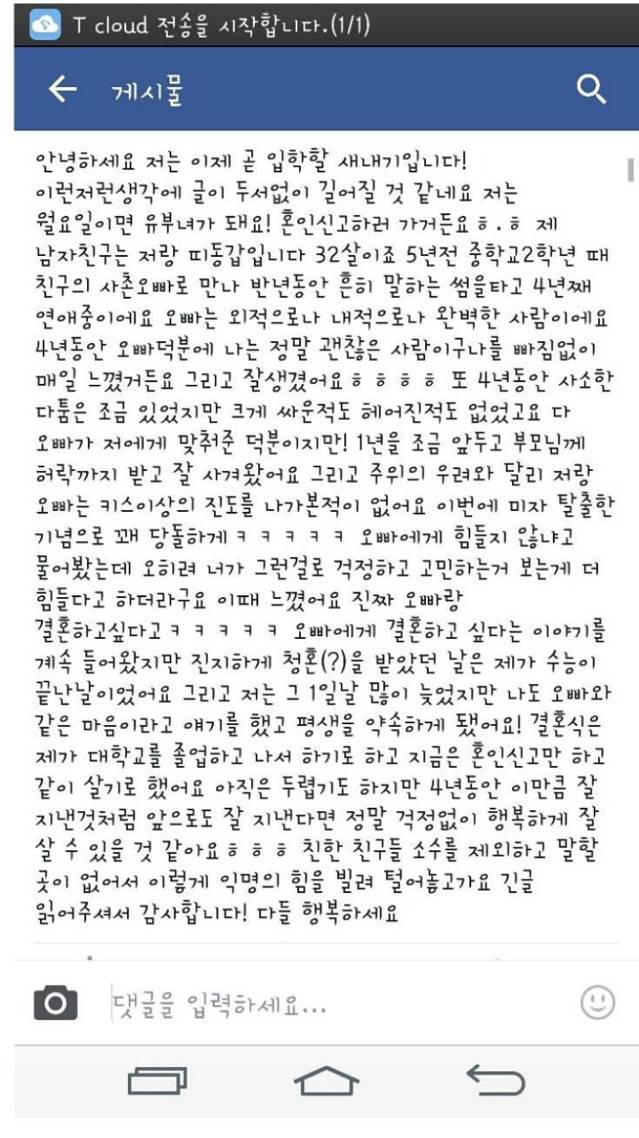 T cloud 전송을 시작합니다.(1/1)
게시물
안녕하세요 저는 이제 곧 입학할 새내기입니다!
이런저런생각에 글이 두서없이 길어질 것 같네요 저는
월요일이면 유부녀가 돼요! 혼인신고하러 가거든요ㅎ.ㅎ 제
남자친구는 저랑 띠동갑입니다 32살이죠 5년전 중학교2학년 때
친구의 사촌오빠로 만나 반년동안 흔히 말하는 썸을타고 4년째
연애중이에요 오빠는 외적으로나 내적으로나 완벽한 사람이에요
4년동안 오빠덕분에 나는 정말 괜찮은 사람이구나를 빠짐없이
매일 느꼈거든요 그리고 잘생겼어요ㅎㅎㅎㅎ 또 4년동안 사소한
다툼은 조금 있었지만 크게 싸운적도 헤어진적도 없었고요 다
오빠가 저에게 맞춰준 덕분이지만! 1년을 조금 앞두고 부모님께
허락까지 받고 잘 사겨왔어요 그리고 주위의 우려와 달리 저랑
오빠는 키스이상의 진도를 나가본적이 없어요 이번에 미자 탈출한
기념으로 꽤 당돌하게ㅋㅋㅋㅋㅋ 오빠에게 힘들지 않냐고
물어봤는데 오히려 너가 그런걸로 걱정하고 고민하는거 보는게 더
힘들다고 하더라구요 이때 느꼈어요 진짜 오빠랑
결혼하고싶다고ㅋㅋㅋㅋㅋ 오빠에게 결혼하고 싶다는 이야기를
계속 들어왔지만 진지하게 청혼(?)을 받았던 날은 제가 수능이
끝난날이었어요 그리고 저는 그 1일날 많이 늦었지만 나도 오빠와
같은 마음이라고 얘기를 했고 평생을 약속하게 됐어요! 결혼식은
제가 대학교를 졸업하고 나서 하기로 하고 지금은 혼인신고만 하고
같이 살기로 했어요 아직은 두렵기도 하지만 4년동안 이만큼 잘
지낸것처럼 앞으로도 잘 지낸다면 정말 걱정없이 행복하게 잘
살 수 있을 것 같아요ㅎㅎㅎ 친한 친구들 소수를 제외하고 말할
곳이 없어서 이렇게 익명의 힘을 빌려 털어놓고가요 긴글
읽어주셔서 감사합니다! 다들 행복하세요
댓글을 입력하세요...